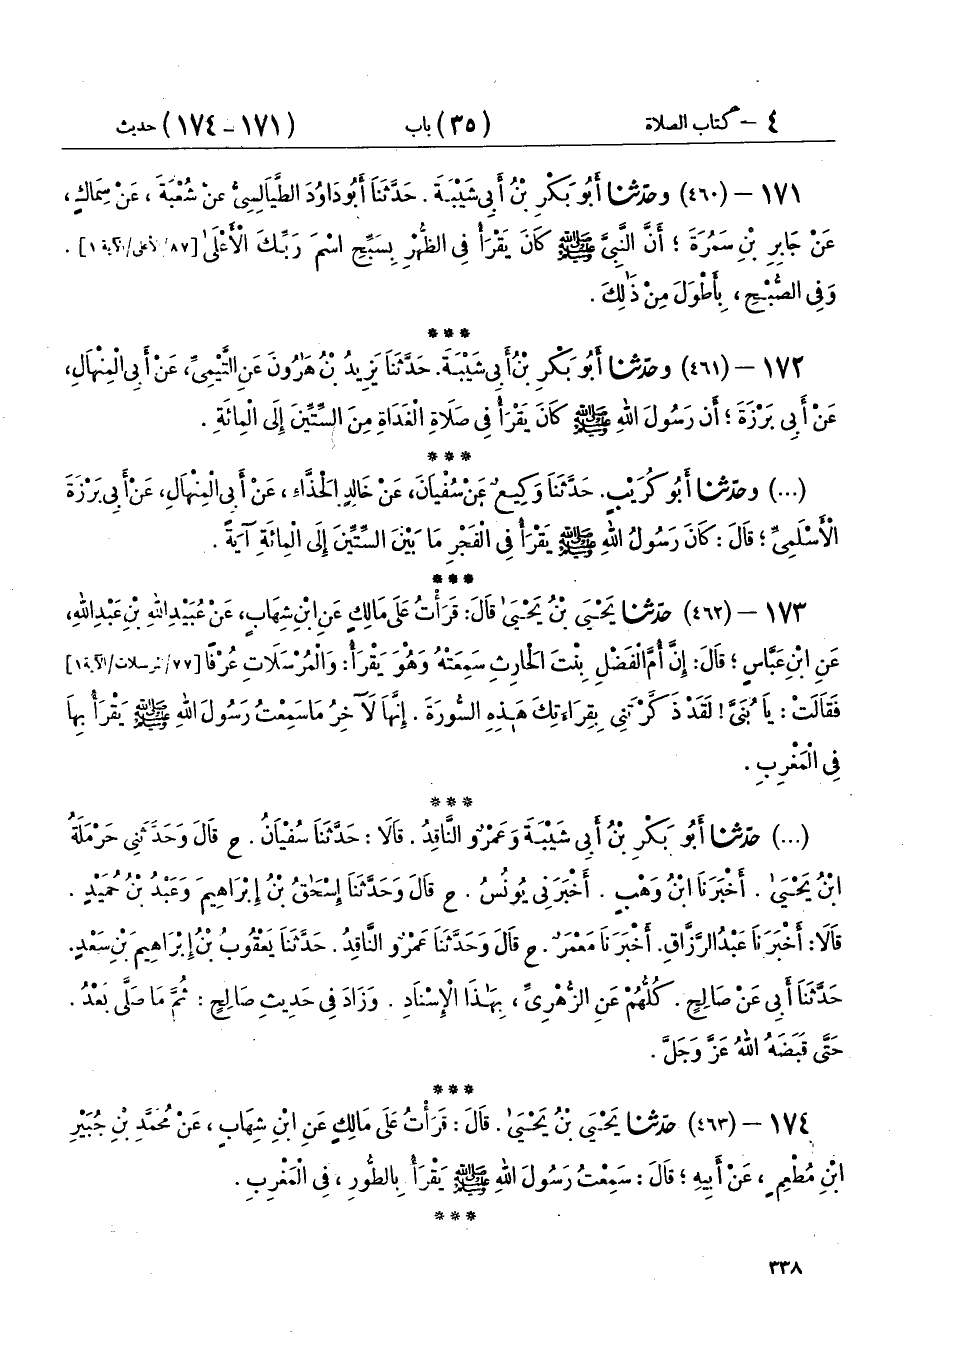 ٤ – كتاب الصلاة (٣٥) باب (١٧١ – ١٧٤) حديث
١٧١ – (٤٦٠) وحَدَّثَنَا أَبُو بَكْرِ بْنُ أَبِي شَيْبَةَ . حَدَّثَنَا أَبُو دَاوُدَ الطَّيَالِسِيُّ عَنْ شُعْبَةَ ، عَنْ سِمَاكٍ ،
عَنْ جَابِرِ بْنِ سَمُرَةَ ؛ أَنَّ النَّبِيَّ ﷺ كَانَ يَقْرَأُ فِي الظُّهْرِ بِسَبِّحِ اسْمَ رَبِّكَ الْأَعْلَىٰ [٨٧/الأعلى/الآية ١] .
وَفِي الصُّبْحِ ، بِأَطْوَلَ مِنْ ذٰلِكَ .
***
١٧٢ – (٤٦١) وحَدَّثَنَا أَبُو بَكْرِ بْنُ أَبِي شَيْبَةَ . حَدَّثَنَا يَزِيدُ بْنُ هَٰرُونَ عَنِ التَّيْمِيِّ ، عَنْ أَبِي الْمِنْهَالِ ،
عَنْ أَبِي بَرْزَةَ ؛ أَن رَسُولَ اللهِ ﷺ كَانَ يَقْرَأُ فِي صَلَاةِ الْغَدَاةِ مِنَ السِّتِّينَ إِلَى الْمِائَةِ .
***
(...) وحَدَّثَنَا أَبُو كُرَيْبٍ . حَدَّثَنَا وَكِيعٌ عَنْ سُفْيَانَ ، عَنْ خَالِدٍ الْحَذَّاءِ ، عَنْ أَبِي الْمِنْهَالِ ، عَنْ أَبِي بَرْزَةَ
الْأَسْلَمِيِّ ؛ قَالَ : كَانَ رَسُولُ اللهِ ﷺ يَقْرَأُ فِي الْفَجْرِ مَا بَيْنَ السِّتِّينَ إِلَى الْمِائَةِ آيَةً .
***
١٧٣ – (٤٦٢) حَدَّثَنَا يَحْيَى بْنُ يَحْيَىٰ قَالَ : قَرَأْتُ عَلَى مَالِكٍ عَنِ ابْنِ شِهَابٍ ، عَنْ عُبَيْدِ اللهِ بْنِ عَبْدِ اللهِ ،
عَنِ ابْنِ عَبَّاسٍ ؛ قَالَ : إِنَّ أُمَّ الْفَضْلِ بِنْتَ الْحَارِثِ سَمِعَتْهُ وَهُوَ يَقْرَأُ : وَالْمُرْسَلَاتِ عُرْفًا [٧٧/المرسلات/الآية ١]
فَقَالَتْ : يَا بُنَيَّ ! لَقَدْ ذَكَّرْتَنِي بِقِرَاءَتِكَ هَٰذِهِ السُّورَةَ . إِنَّهَا لَآخِرُ مَا سَمِعْتُ رَسُولَ اللهِ ﷺ يَقْرَأُ بِهَا
فِي الْمَغْرِبِ .
***
(...) حَدَّثَنَا أَبُو بَكْرِ بْنُ أَبِي شَيْبَةَ وَعَمْرٌو النَّاقِدُ . قَالَا : حَدَّثَنَا سُفْيَانُ . ح قَالَ وَحَدَّثَنِي حَرْمَلَةُ
ابْنُ يَحْيَىٰ . أَخْبَرَنَا ابْنُ وَهْبٍ . أَخْبَرَنِي يُونُسُ . ح قَالَ وَحَدَّثَنَا إِسْحَٰقُ بْنُ إِبْرَاهِيمَ وَعَبْدُ بْنُ حُمَيْدٍ .
قَالَا : أَخْبَرَنَا عَبْدُ الرَّزَّاقِ . أَخْبَرَنَا مَعْمَرٌ . ح قَالَ وَحَدَّثَنَا عَمْرٌو النَّاقِدُ . حَدَّثَنَا يَعْقُوبُ بْنُ إِبْرَاهِيمَ بْنِ سَعْدٍ .
حَدَّثَنَا أَبِي عَنْ صَالِحٍ . كُلُّهُمْ عَنِ الزُّهْرِيِّ ، بِهَٰذَا الْإِسْنَادِ . وَزَادَ فِي حَدِيثِ صَالِحٍ : ثُمَّ مَا صَلَّى بَعْدُ .
حَتَّى قَبَضَهُ اللهُ عَزَّ وَجَلَّ .
***
١٧٤ – (٤٦٣) حَدَّثَنَا يَحْيَى بْنُ يَحْيَىٰ . قَالَ : قَرَأْتُ عَلَى مَالِكٍ عَنِ ابْنِ شِهَابٍ ، عَنْ مُحَمَّدِ بْنِ جُبَيْرِ
ابْنِ مُطْعِمٍ ، عَنْ أَبِيهِ ؛ قَالَ : سَمِعْتُ رَسُولَ اللهِ ﷺ يَقْرَأُ بِالطُّورِ ، فِي الْمَغْرِبِ .
***
٣٣٨